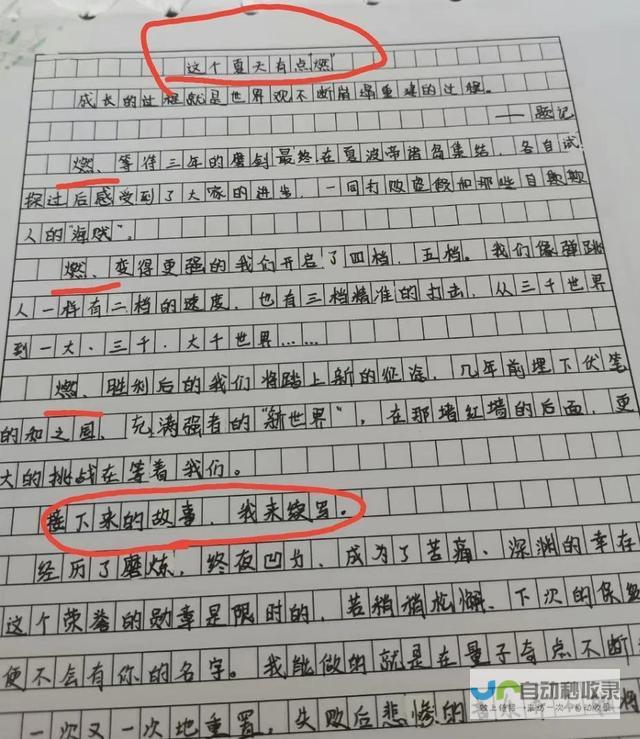 这个夏天有点"燃"
成长的过程就是世界观不断崩塌重建的过程。
——题记
燃、等待三年的磨剑最终在夏波帝诸岛集结，各自试
探过后感受到了大家的进步，一同打败虚假如那些自欺欺
人的"海贼"。
燃、变得更强的我们开启了四档，五档。我们像弹跳
人一样有二档的速度，也有三档精准的打击，从三千世界
到一大、三千、大千世界……
燃、胜利后的我们将踏上新的征途，几年前埋下伏笔
的和之国，充满强者的"新世界"，在那堵红墙的后面，更
大的挑战在等着我们。
接下来的故事，我来续写。
经历了磨炼，终夜凹为，成为了苦痛、深渊的幸存
这个荣誉的勋章是限时的，若稍稍松懈、下次的保级
便不会有你的名字。我能做的就是在量子奇点不断
一次又一次地重置，失败后悲惨的
自动秒收录